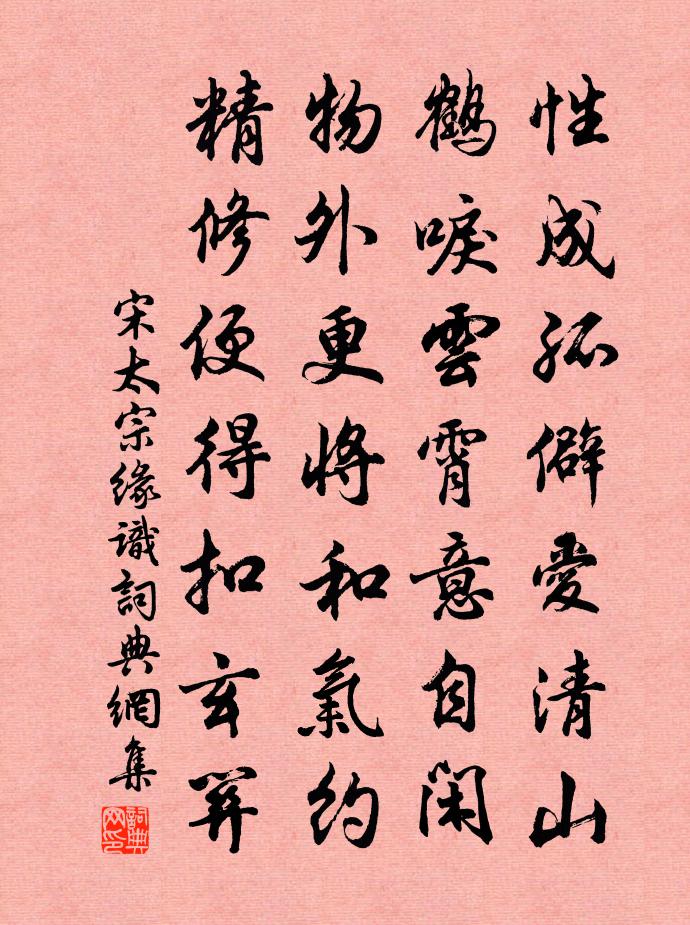 性成孤僻愛清山
鶴唳雲霄意自閑
物外更將和氣約
精修便得扣玄關
宋太宗緣識詞典網集
詞典網印